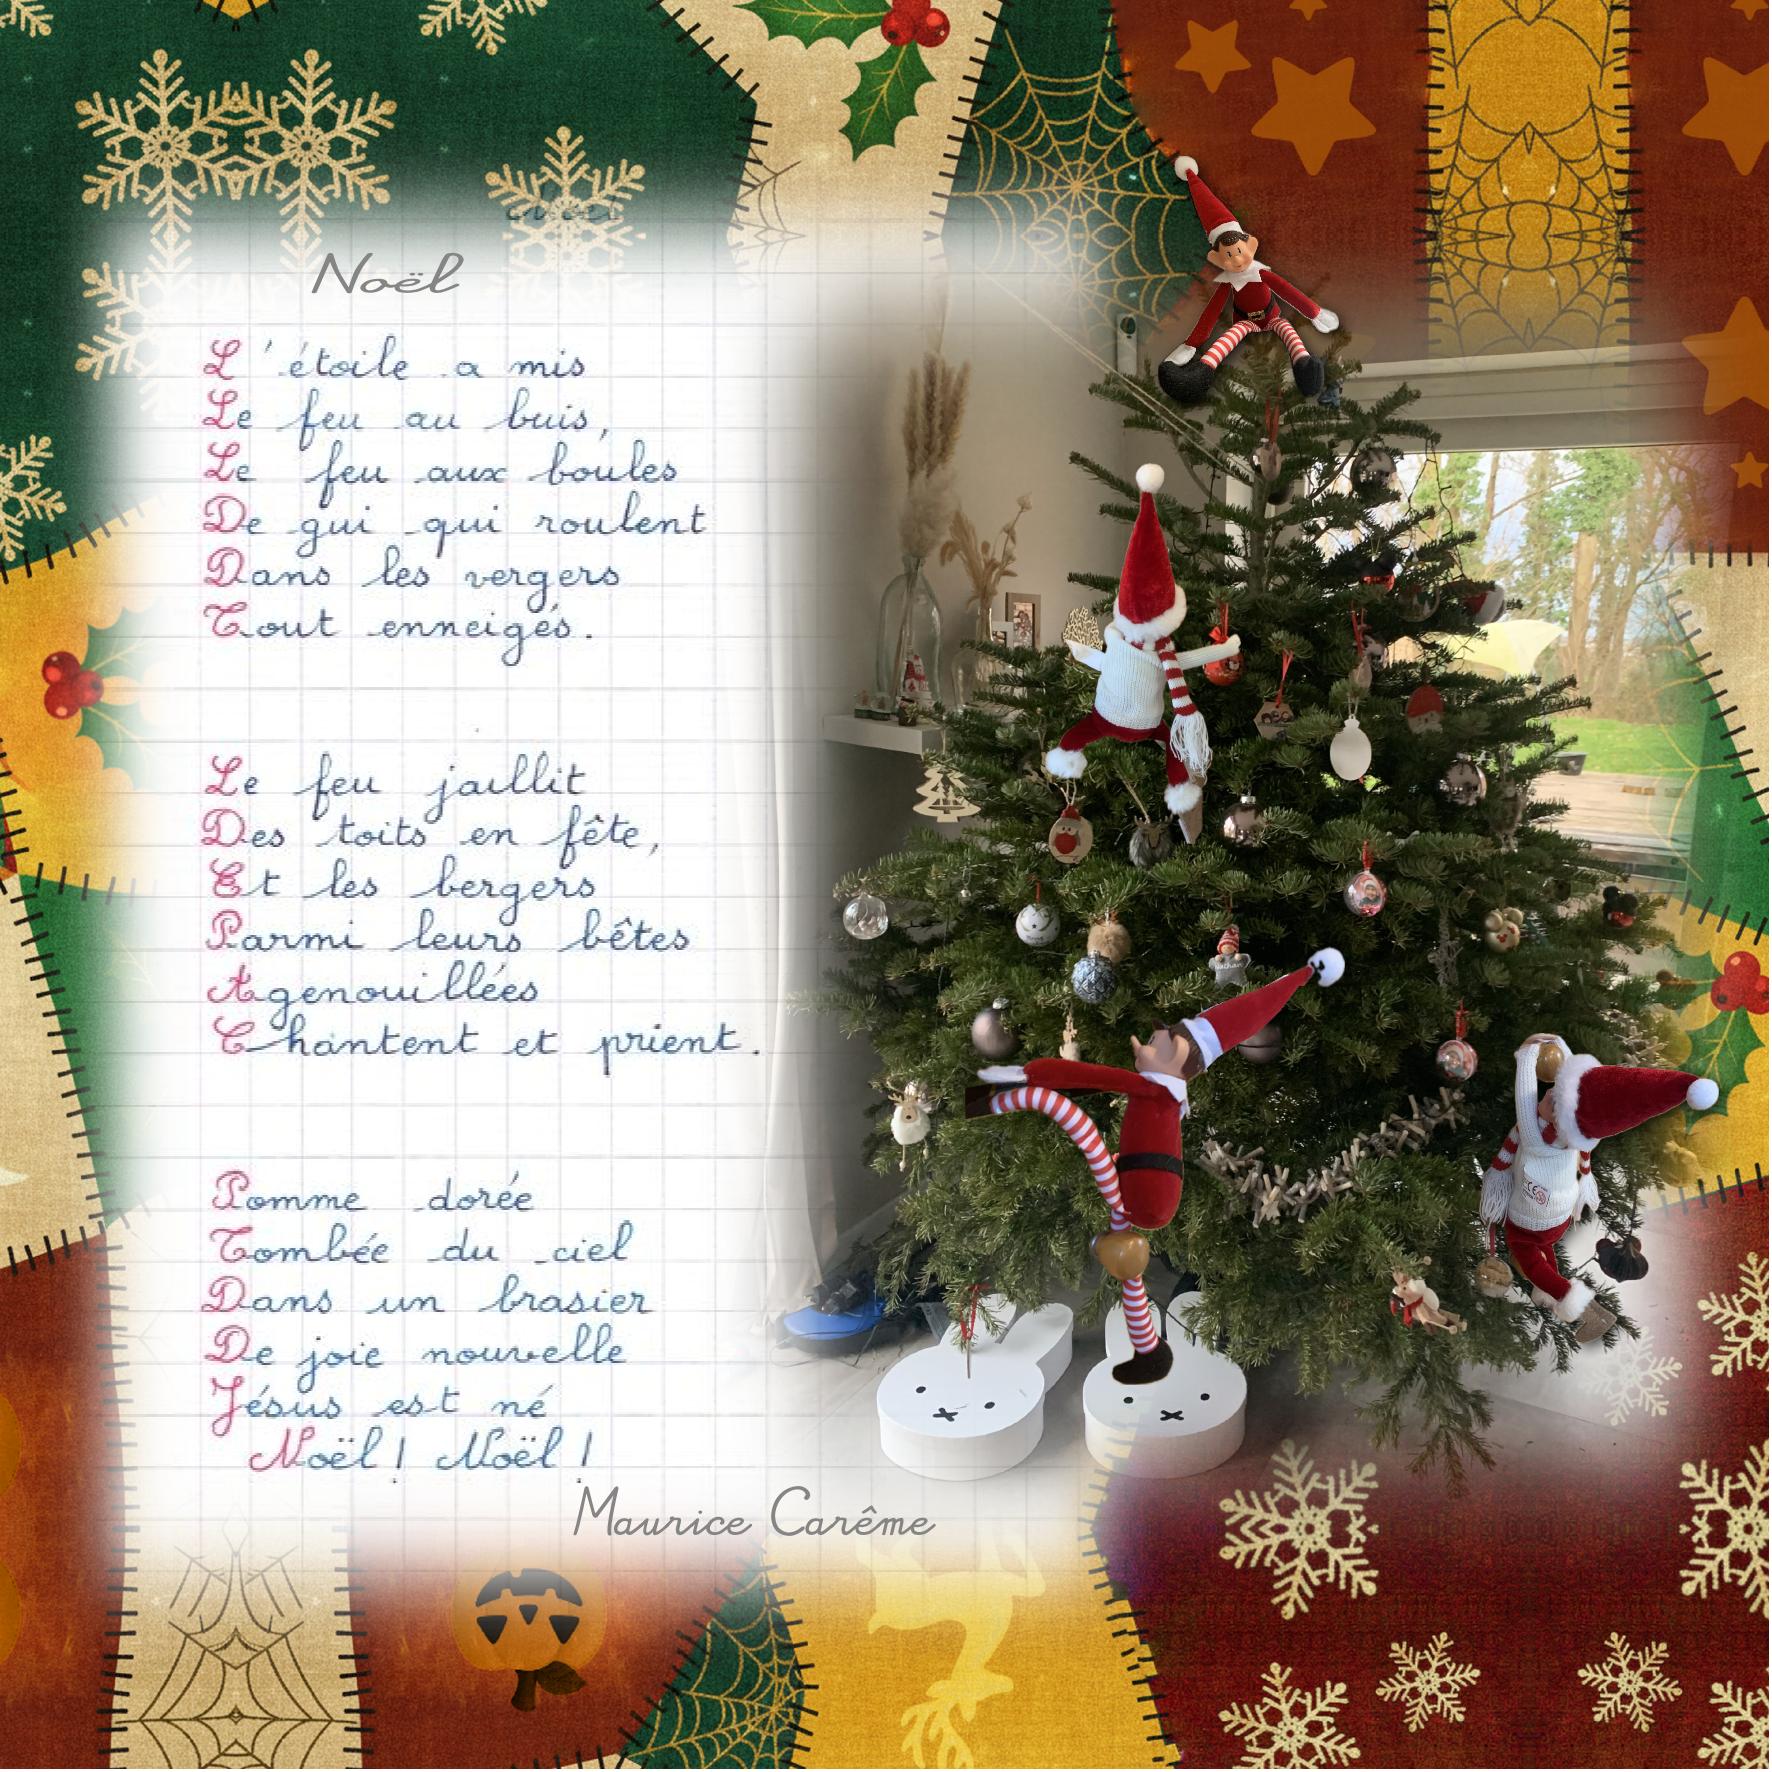 Noël
L'étoile a mis
Le feu au buis,
Le feu aux boules
De gui qui roulent
Dans les vergers
Tout enneigés.
Le feu jaillit
Des toits en fête,
Et les bergers
Parmi leurs bêtes
Agenouillées
Chantent et prient.
Pomme dorée
Tombée du ciel
Dans un brasier
De joie nouvelle
Jésus est né
Noël! Noël!
Maurice Carême
Nathan
CE